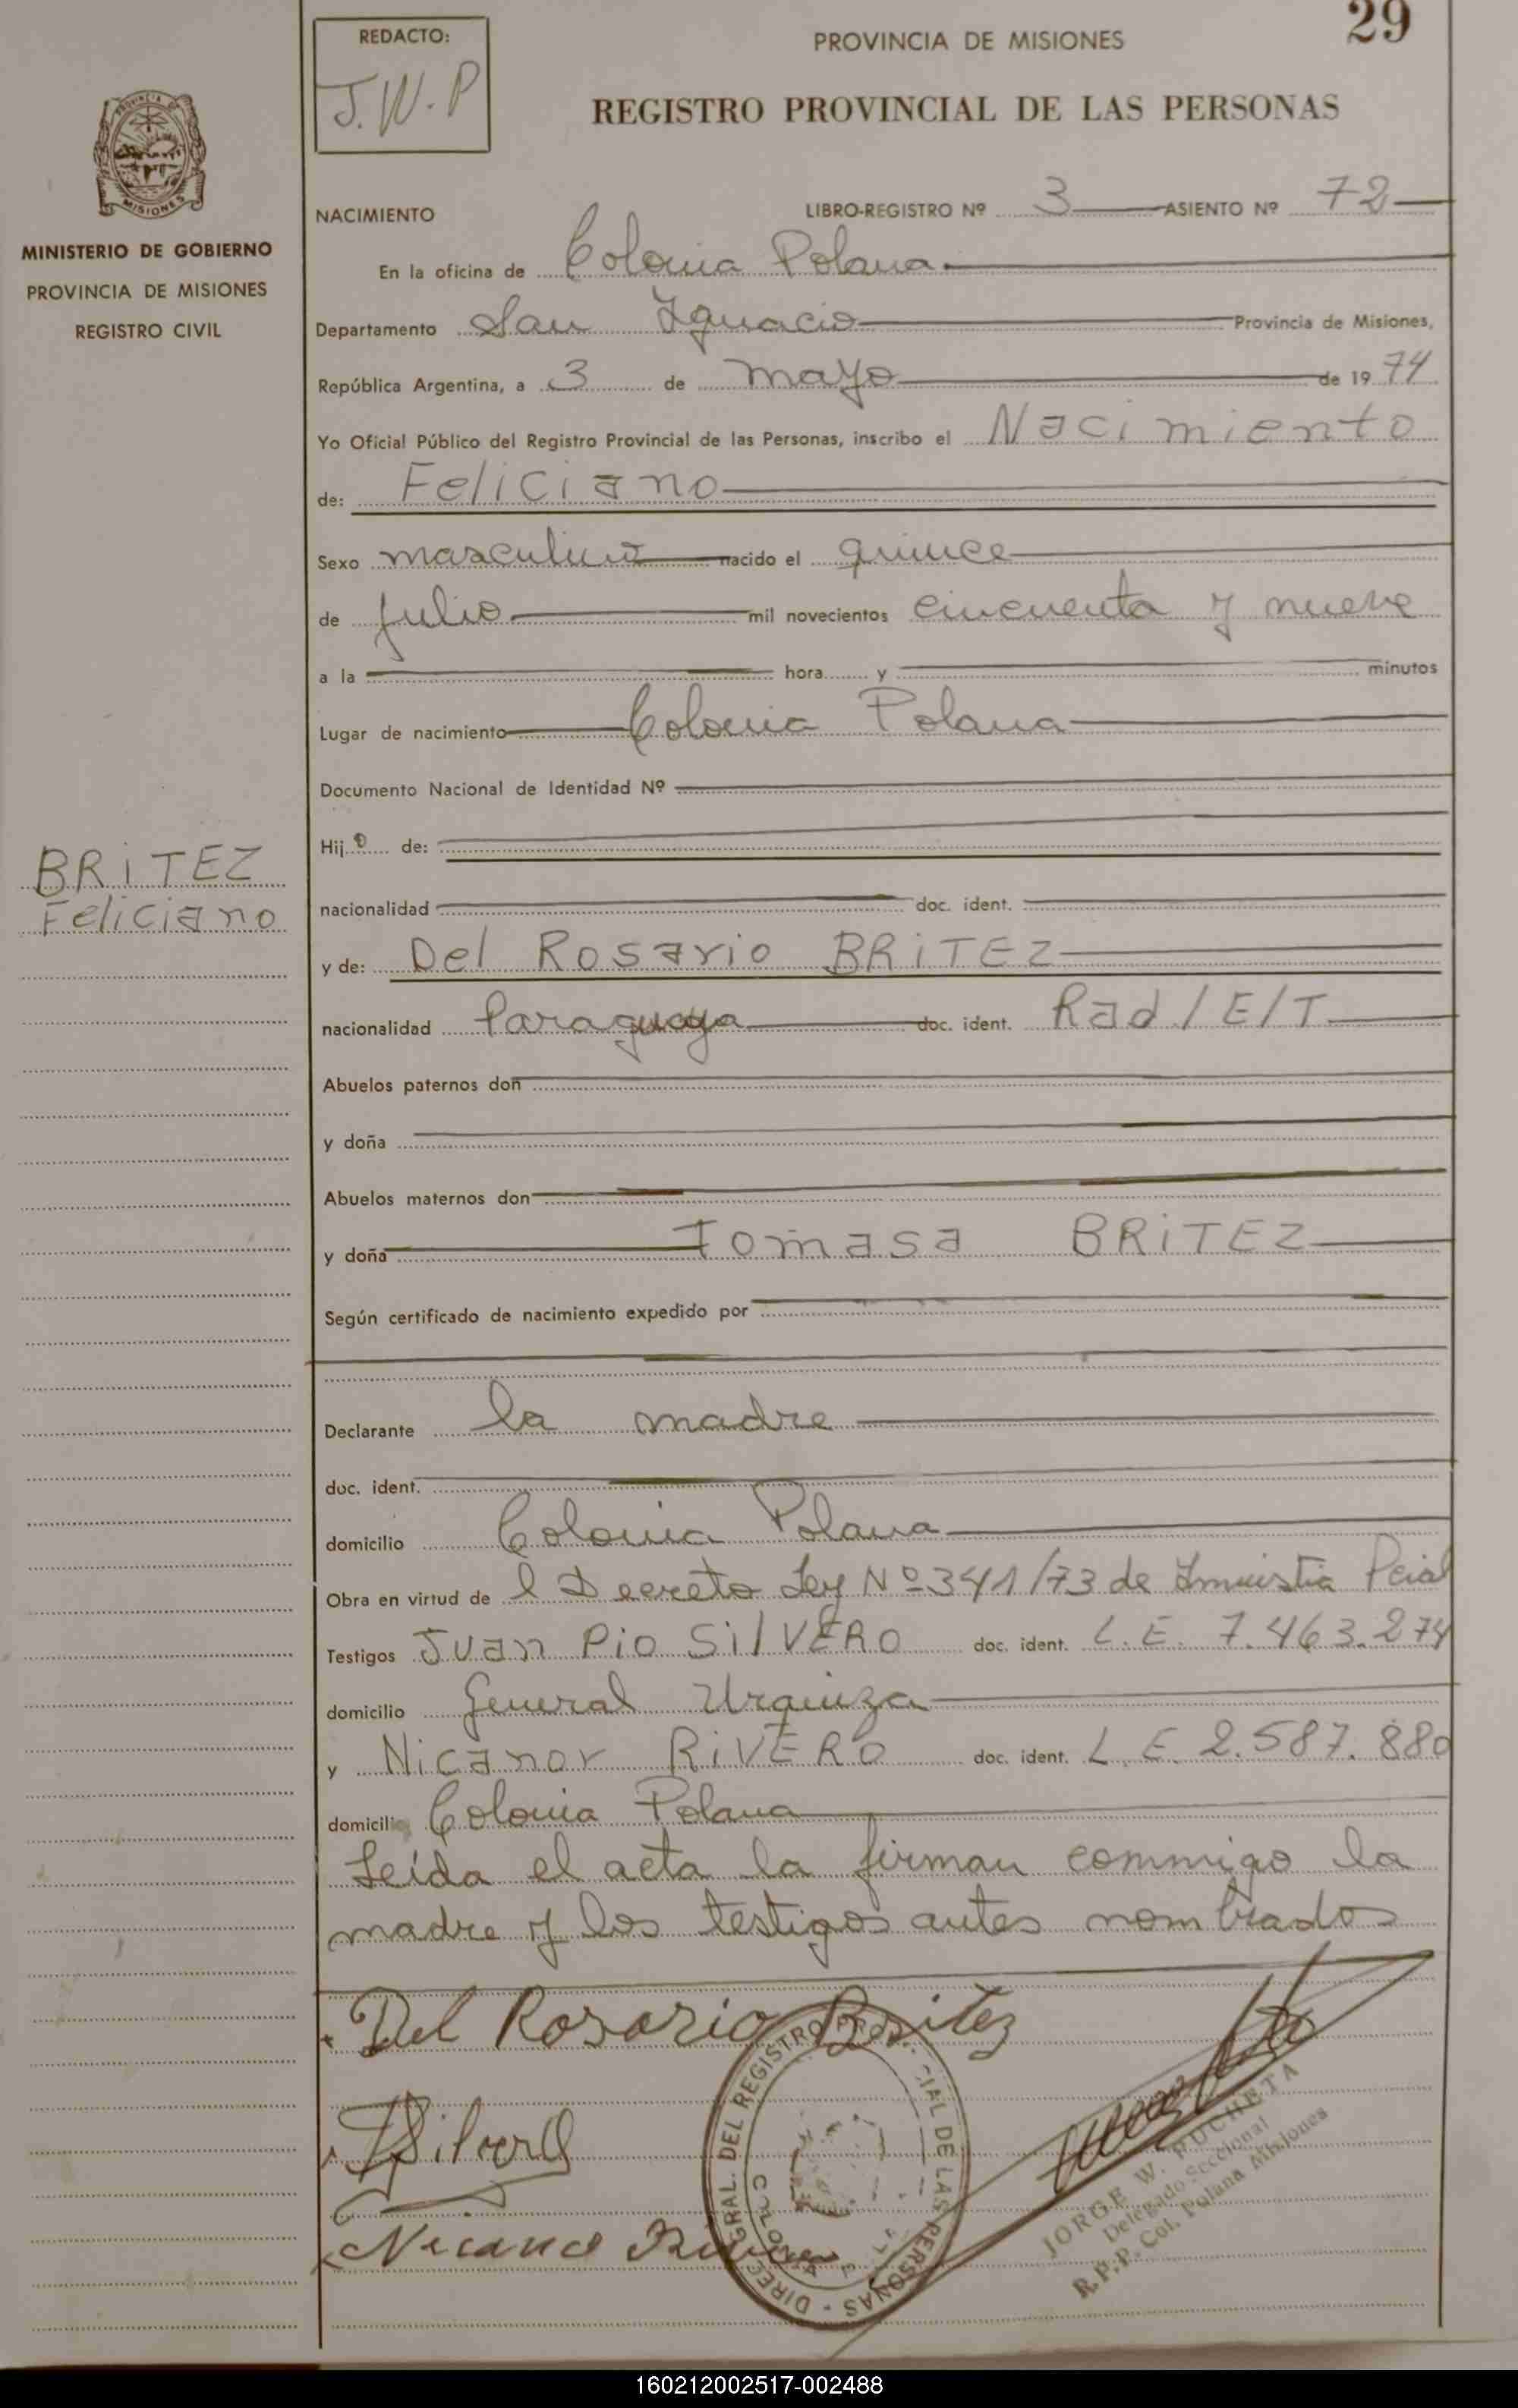 29
REDACTO:
J.W.P
PROVINCIA DE MISIONES
REGISTRO PROVINCIAL DE LAS PERSONAS
PROVINCIA DE
MISIONES
MINISTERIO DE GOBIERNO
PROVINCIA DE MISIONES
REGISTRO CIVIL
NACIMIENTO LIBRO-REGISTRO Nº 3 ASIENTO Nº 72
En la oficina de Colonia Polana
Departamento San Ignacio Provincia de Misiones,
República Argentina, a 3 de mayo de 1974
Yo Oficial Público del Registro Provincial de las Personas, inscribo el Nacimiento
de: Feliciano
Sexo masculino nacido el quince
de julio mil novecientos cincuenta y nueve
a la hora y minutos
Lugar de nacimiento Colonia Polana
Documento Nacional de Identidad Nº
Hijo de:
BRITEZ
Feliciano
nacionalidad doc. ident.
y de: Del Rosario BRITEZ
nacionalidad Paraguaya doc. ident. Rad/E/T
Abuelos paternos don
y doña
Abuelos maternos don
y doña Tomasa BRITEZ
Según certificado de nacimiento expedido por
Declarante la madre
doc. ident.
domicilio Colonia Polana
Obra en virtud de l Decreto Ley Nº 341/73 de Amnistia Pcial
Testigos Juan Pio SILVERO doc. ident. L.E. 7.463.274
domicilio General Urquiza
y Nicanor RIVERO doc. ident. L.E. 2.587.880
domicilio Colonia Polana
Leída el acta la firman conmigo la
madre y los testigos antes nombrados
Del Rosario Britez
Silvero
Nicanor Rivero
DIREC. GRAL. DEL REGISTRO PROVINCIAL DE LAS PERSONAS
JORGE W. PUCHETA
Delegado Seccional
R.P.P. Col. Polana Misiones
160212002517-002488